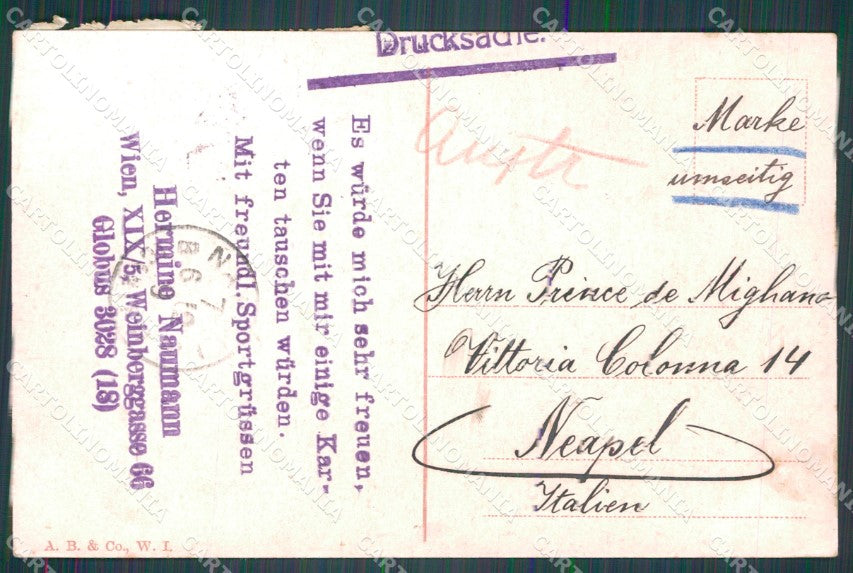 Drucksache.
Marke
umseitig
Austr
Herrn Prince de Mighano
Vittoria Colonna 14
Neapel
Italien
Es würde mich sehr freuen,
wenn Sie mit mir einige Kar-
ten tauschen würden.
Mit freundl. Sportgrüssen
Hermine Naumann
Wien, XIX/5, Weinberggasse 66
Globus 3028 (18)
A. B. & Co., W. I.
CARTOLINOMANIA